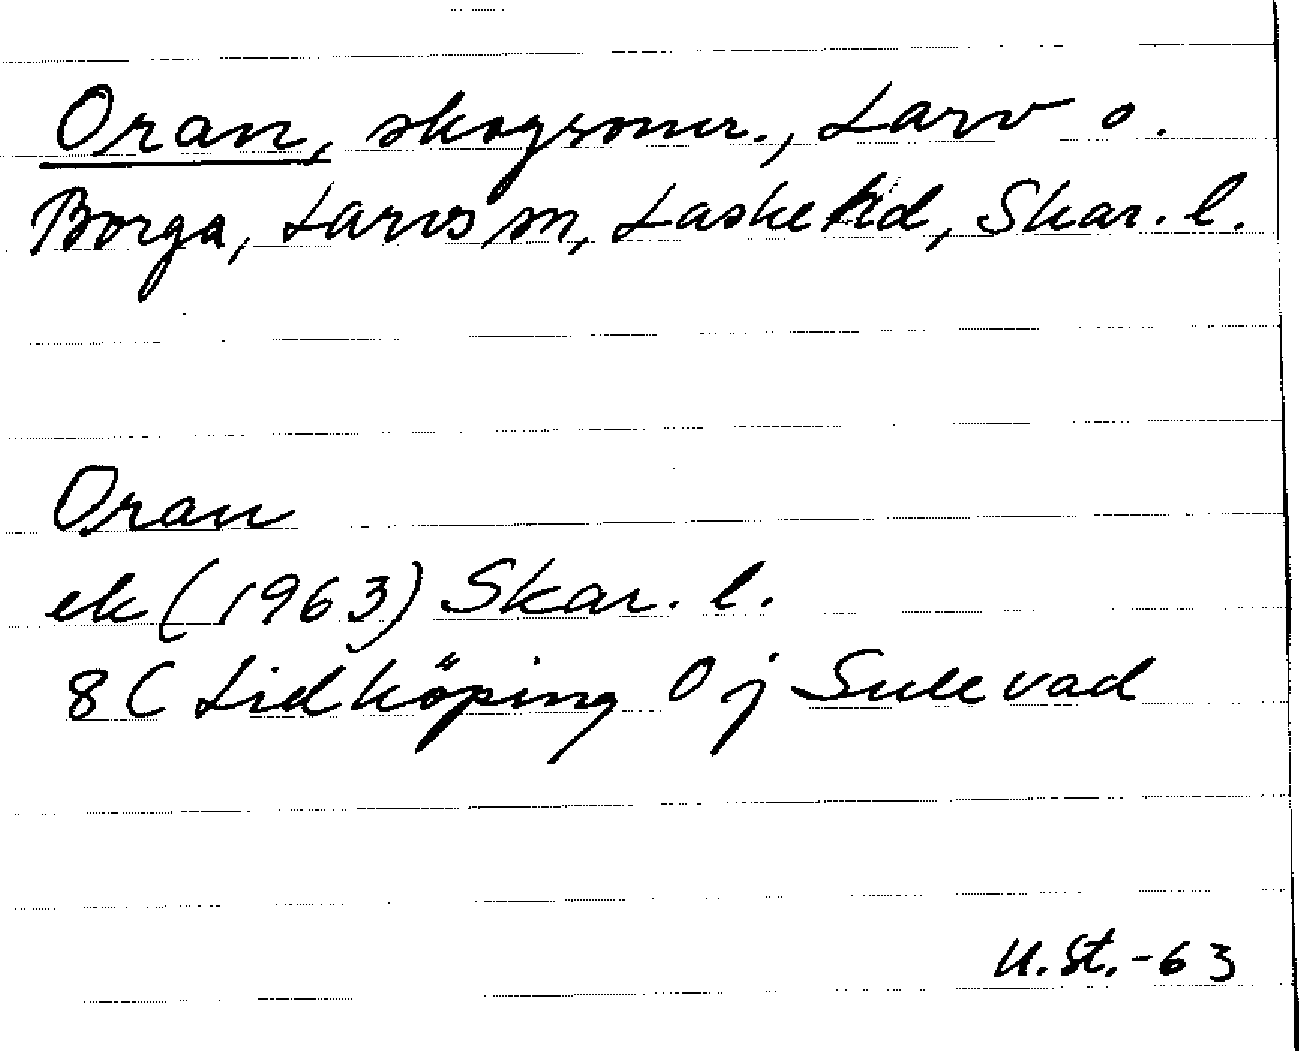 Oran, skogsomr., Larv o.
Borga, Larvs sn, Laske hd, Skar. l.
Oran
ek (1963) Skar. l.
8C Lidköping 0j Sulevad
U.St.-63